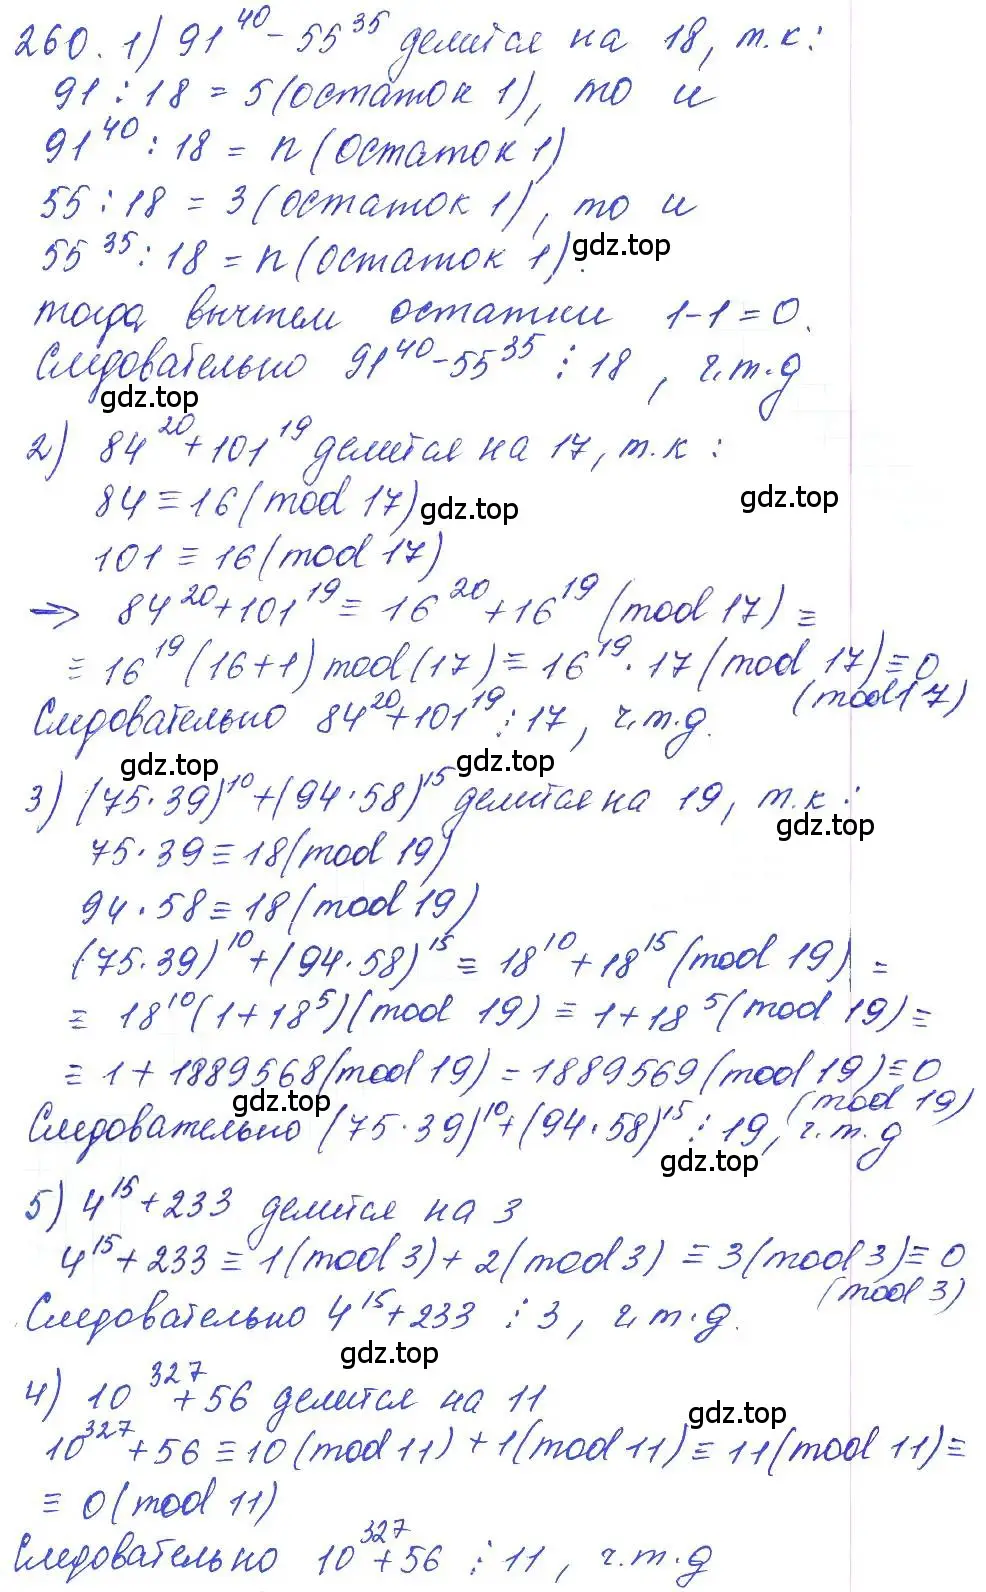 260. 1) 91^40 - 55^35 делится на 18, т.к:
91 : 18 = 5 (остаток 1), то и
91^40 : 18 = n (остаток 1)
55 : 18 = 3 (остаток 1), то и
55^35 : 18 = n (остаток 1).
gdz.top
тогда вычтем остатки 1-1=0.
Следовательно 91^40 - 55^35 ⋮ 18, ч.т.д
gdz.top
2) 84^20 + 101^19 делится на 17, т.к:
84 ≡ 16 (mod 17)
gdz.top
gdz.top
101 ≡ 16 (mod 17)
-> 84^20 + 101^19 ≡ 16^20 + 16^19 (mod 17) ≡
≡ 16^19 (16+1) mod (17) ≡ 16^19 · 17 (mod 17) ≡ 0
(mod 17)
Следовательно 84^20 + 101^19 ⋮ 17, ч.т.д.
gdz.top
gdz.top
3) (75·39)^10 + (94·58)^15 делится на 19, т.к:
gdz.top
75·39 ≡ 18 (mod 19)
94·58 ≡ 18 (mod 19)
(75·39)^10 + (94·58)^15 ≡ 18^10 + 18^15 (mod 19) =
≡ 18^10 (1+18^5) (mod 19) ≡ 1+18^5 (mod 19) =
≡ 1 + 1889568 (mod 19) = 1889569 (mod 19) ≡ 0
(mod 19)
gdz.top
Следовательно (75·39)^10 + (94·58)^15 ⋮ 19, ч.т.д
gdz.top
5) 4^15 + 233 делится на 3
4^15 + 233 ≡ 1 (mod 3) + 2 (mod 3) ≡ 3 (mod 3) ≡ 0
(mod 3)
Следовательно 4^15 + 233 ⋮ 3, ч.т.д.
gdz.top
4) 10^327 + 56 делится на 11
gdz.top
10^327 + 56 ≡ 10 (mod 11) + 1 (mod 11) ≡ 11 (mod 11) ≡
≡ 0 (mod 11)
Следовательно 10^327 + 56 ⋮ 11, ч.т.д